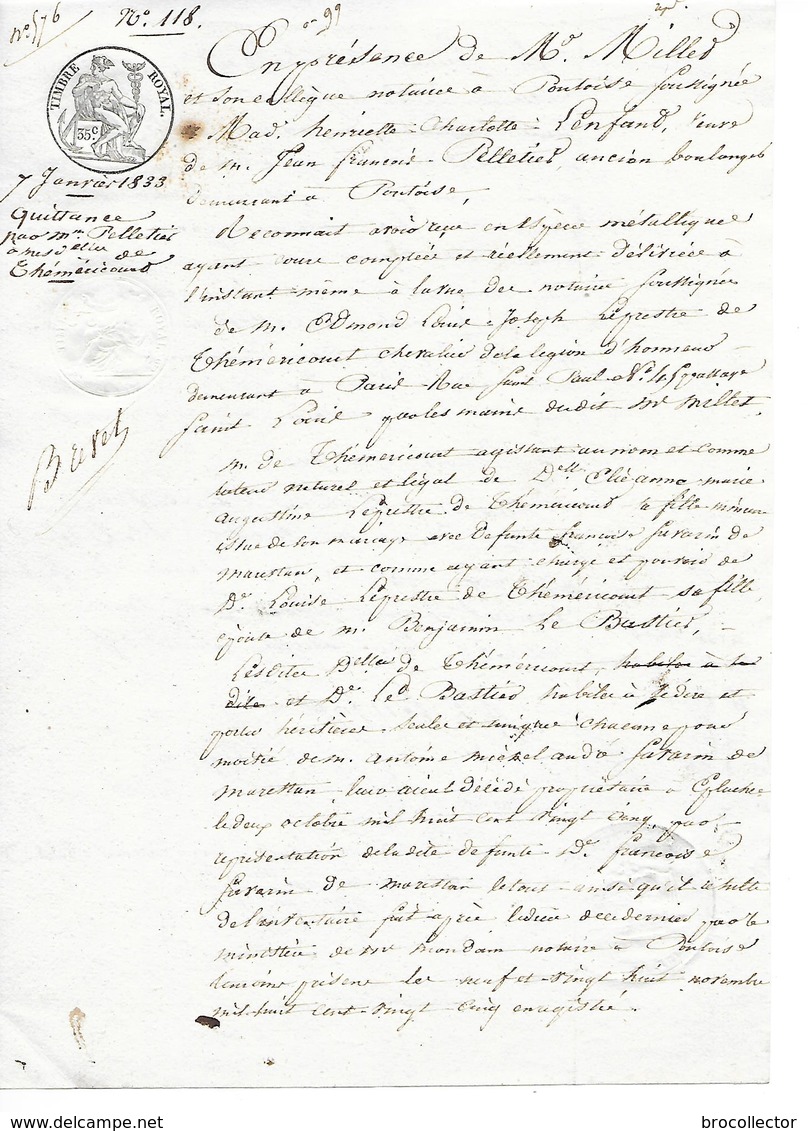 n° 576
N°. 118.
99
TIMBRE ROYAL.
35c
7 Janvier 1833
Quittance
par Mme Pelletier
à mesd elles de
Théméricourt
Brevet
En présence de Me. Millet
et son collègue notaire à Pontoise soussignés
Mad. henriette Charlotte Lenfant, veuve
de M. Jean françois Pelletier, ancien boulanger
demeurant à Pontoise,
Reconnait avoir reçu en espèce métallique
ayant cours comptée et réellement délivrée à
l'instant même à la vue des notaire soussignés
de M. Edmond Louis Joseph Leprestre de
Théméricourt chevalier de la légion d'honneur
demeurant à Paris Rue Saint Paul N° 4 passage
Saint Louis par les mains dudit Me Millet.
M. de Théméricourt agissant au nom et comme
tuteur naturel et légal de Delle marie
augustine Leprestre de Théméricourt sa fille mineure
issue de son mariage avec defunte françoise Savarin de
marestan, et comme ayant charge et pouvoir de
De. Louise Leprestre de Théméricourt sa fille
épouse de M. Benjamin Le Bastier,
Lesdites Delles de Théméricourt habiles à se
dite et De. Le Bastier habiles à se dire et
porter héritières seules et unique chacune pour
moitié de M. antoine michel andré Savarin de
marestan leur aieul décédé propriétaire à
le deux octobre mil huit cent vingt cinq, par
représentation de la dite defunte De. françoise
Savarin de marestan le tout ainsi qu'il résulte
de l'inventaire fait après le décès de ce dernier par le
ministère de Me notaire à Pontoise
témoins présens les neuf et vingt huit novembre
mil huit cent vingt cinq enregistré.
brocollector